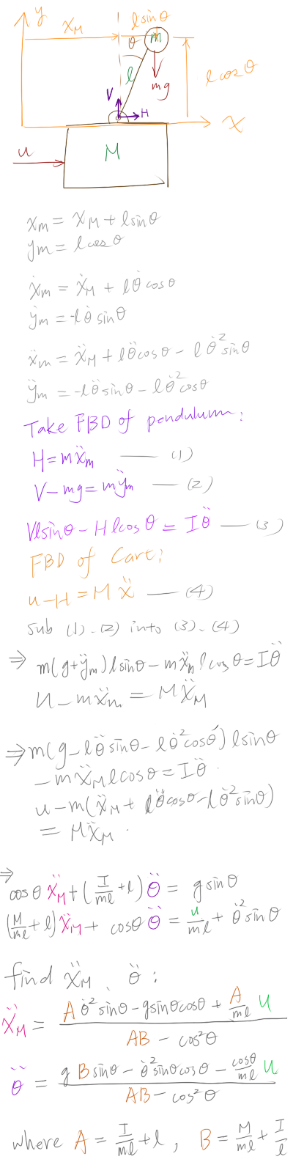 y
x_M
l sinθ
θ
m
l
mg
l cosθ
V
H
x
u
M
x_m = x_M + l sinθ
y_m = l cosθ
ẋ_m = ẋ_M + l θ̇ cosθ
ẏ_m = -l θ̇ sinθ
ẍ_m = ẍ_M + l θ̈ cosθ - l θ̇² sinθ
ÿ_m = -l θ̈ sinθ - l θ̇² cosθ
Take FBD of pendulum:
H = m ẍ_m —— (1)
V - mg = m ÿ_m —— (2)
V l sinθ - H l cosθ = I θ̈ — (3)
FBD of Cart:
u - H = M ẍ —— (4)
Sub (1), (2) into (3), (4)
⇒ m(g + ÿ_m) l sinθ - m ẍ_m l cosθ = I θ̈
u - m ẍ_m = M ẍ_M
⇒ m(g - l θ̈ sinθ - l θ̇² cosθ) l sinθ
- m ẍ_M l cosθ = I θ̈
u - m(ẍ_M + l θ̈ cosθ - l θ̇² sinθ)
= M ẍ_M
⇒
cosθ ẍ_M + (I/ml + l) θ̈ = g sinθ
(M/ml + l) ẍ_M + cosθ θ̈ = u/ml + θ̇² sinθ
find ẍ_M, θ̈ :
ẍ_M = (A θ̇² sinθ - g sinθ cosθ + A/ml u) / (AB - cos²θ)
θ̈ = (g B sinθ - θ̇² sinθ cosθ - cosθ/ml u) / (AB - cos²θ)
where A = I/ml + l , B = M/ml + I/l